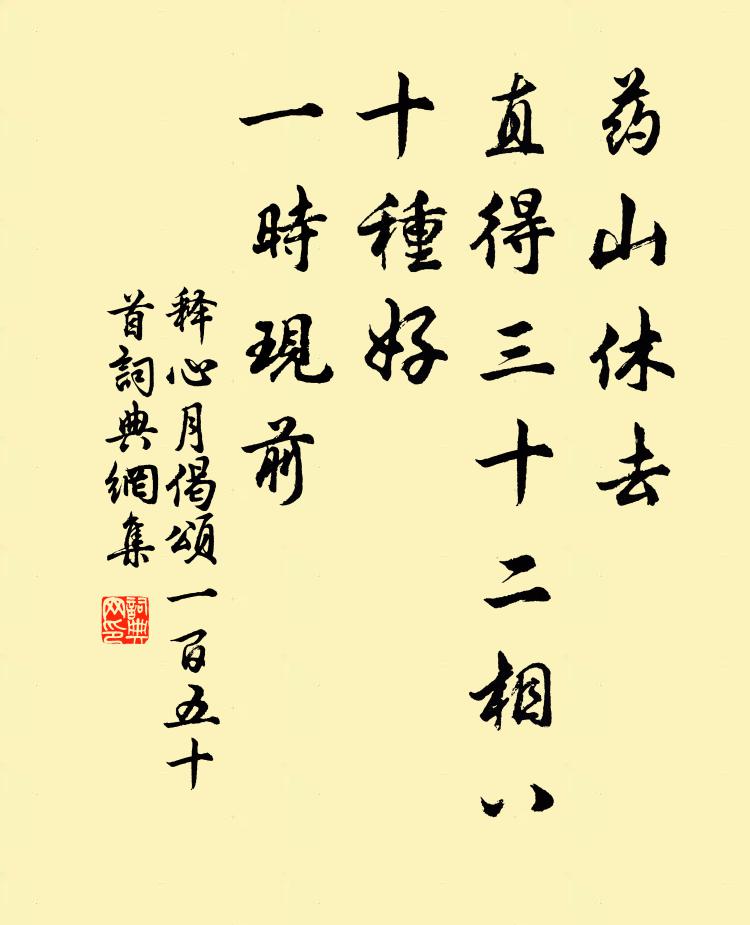 药山休去
直得三十二相八
十種好
一時現前
释心月偈頌一百五十
首詞典網集
詞典网印